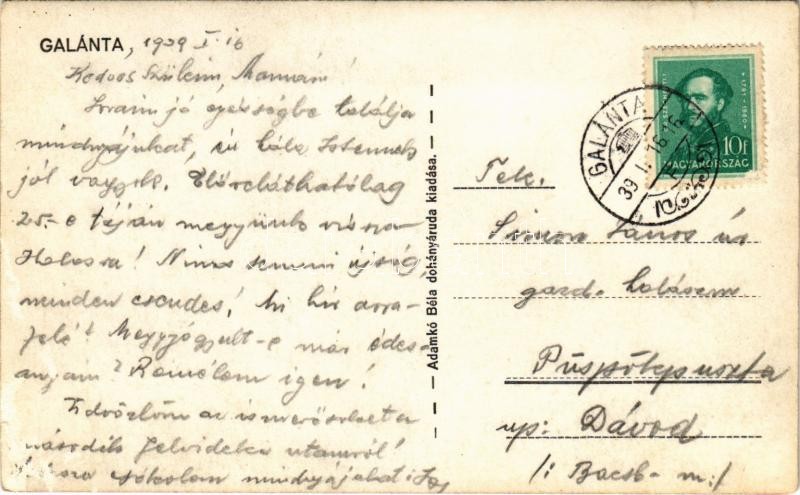 GALÁNTA, 1939 I. 16
Kedves Szüleim, Mamám!
Soraim jó egészségbe találja
mindnyájukat, én hála Istennek
jól vagyok. Előreláthatólag
25.-e táján megyünk vissza
Halasra! Nincs semmi újság,
minden csendes! Mi hír arra-
felé? Meggyógyult-e már édes-
anyám? Remélem igen!
Üdvözlöm az ismerősöket a
második felvidéki utamról!
csókolom mindnyájukat:
— Adamkó Béla dohányáruda kiadása. —
GALÁNTA
39 I. 16 16
10f
MAGYARORSZÁG
Tek.
Simon János úr
gazd.
Püspökpuszta
up: Dávod
/: Bácsb- m:/